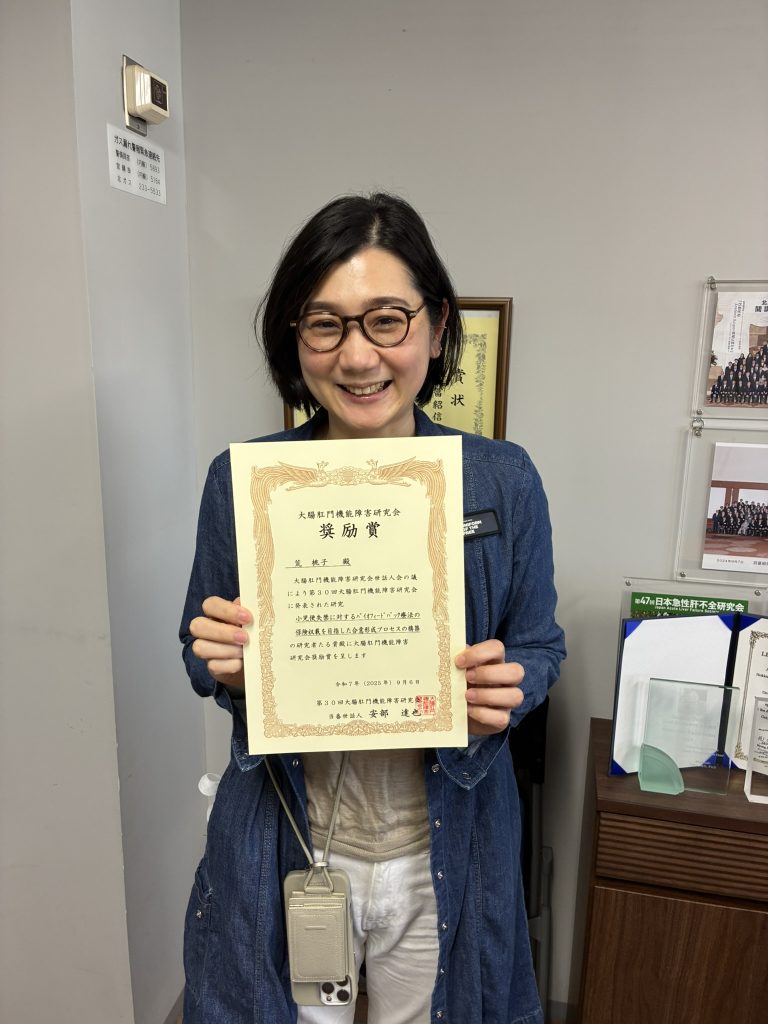 ガス漏れ警報緊急連絡先
警務員室 (内線) 5693
(内線) 5164
北ガス 233-5533
賞状
大腸肛門機能障害研究会
奨励賞
荒 桃子 殿
大腸肛門機能障害研究会世話人会の議
により第30回大腸肛門機能障害研究会
に発表された研究
小児便失禁に対するバイオフィードバック療法の
保険収載を目指した合意形成プロセスの構築
の研究者たる貴殿に大腸肛門機能障害
研究会奨励賞を呈します
令和7年(2025年)9月6日
第30回大腸肛門機能障害研究会
当番世話人 安部 達也
UNIFORM
OF THE
第47回日本急性肝不全研究会
Japan Acute Liver Failure